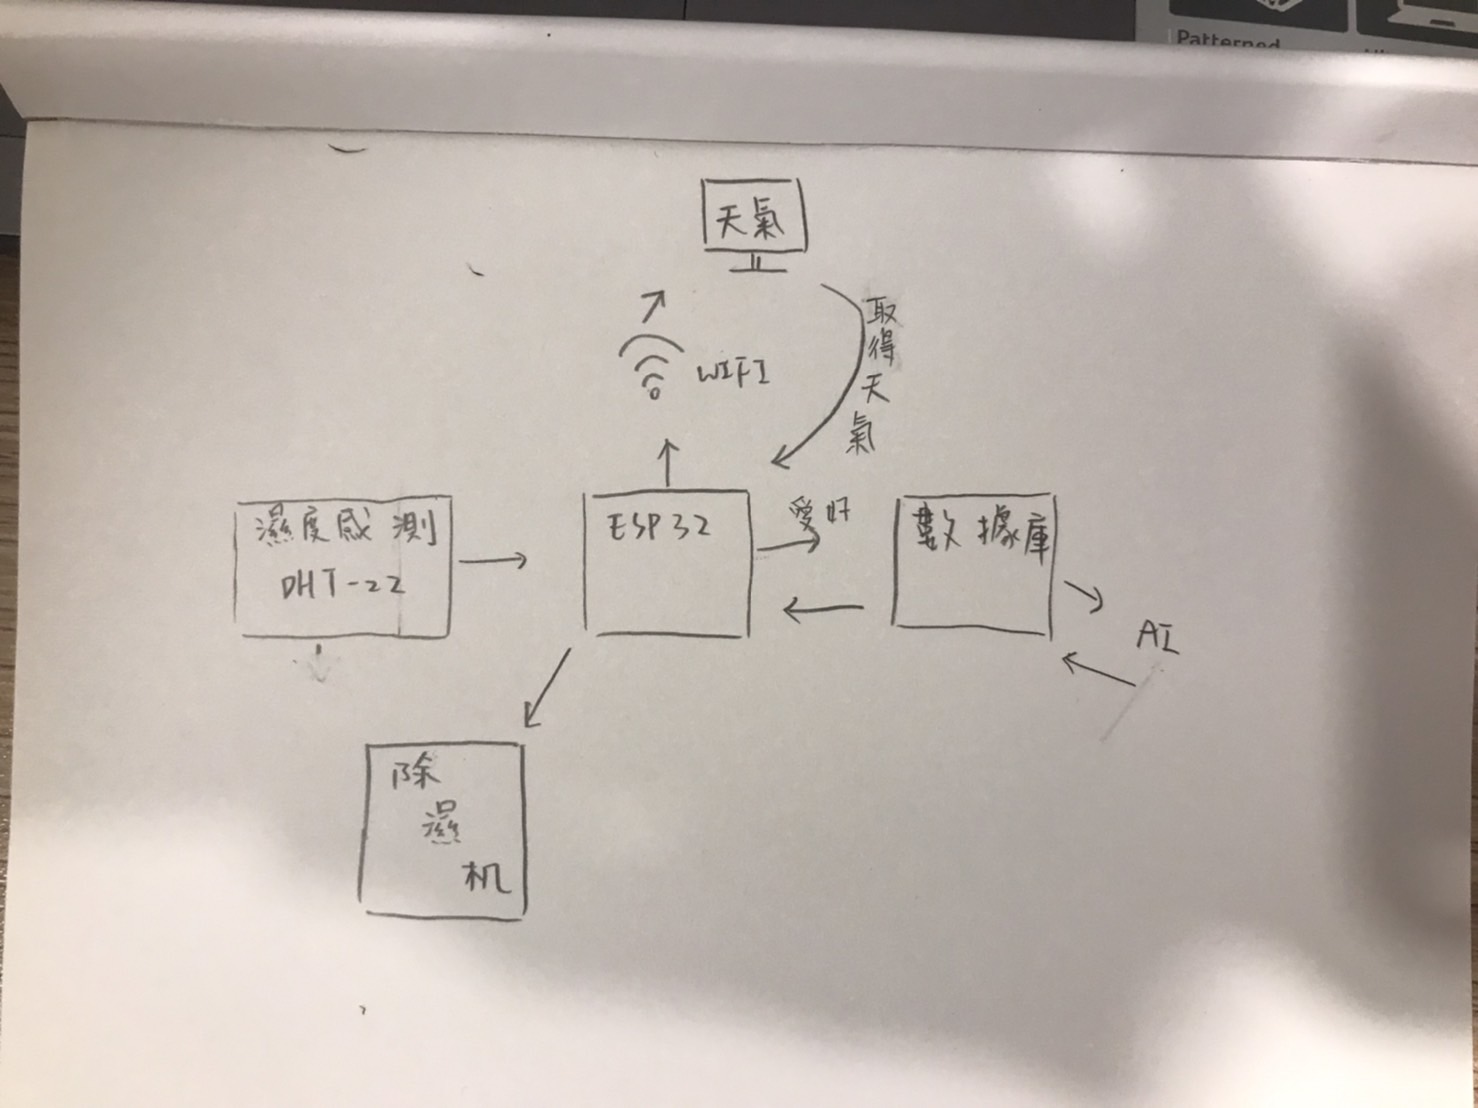 Patterned
天氣
取得天氣
WIFI
濕度感測
DHT-22
ESP32
愛好
數據庫
AI
除濕机